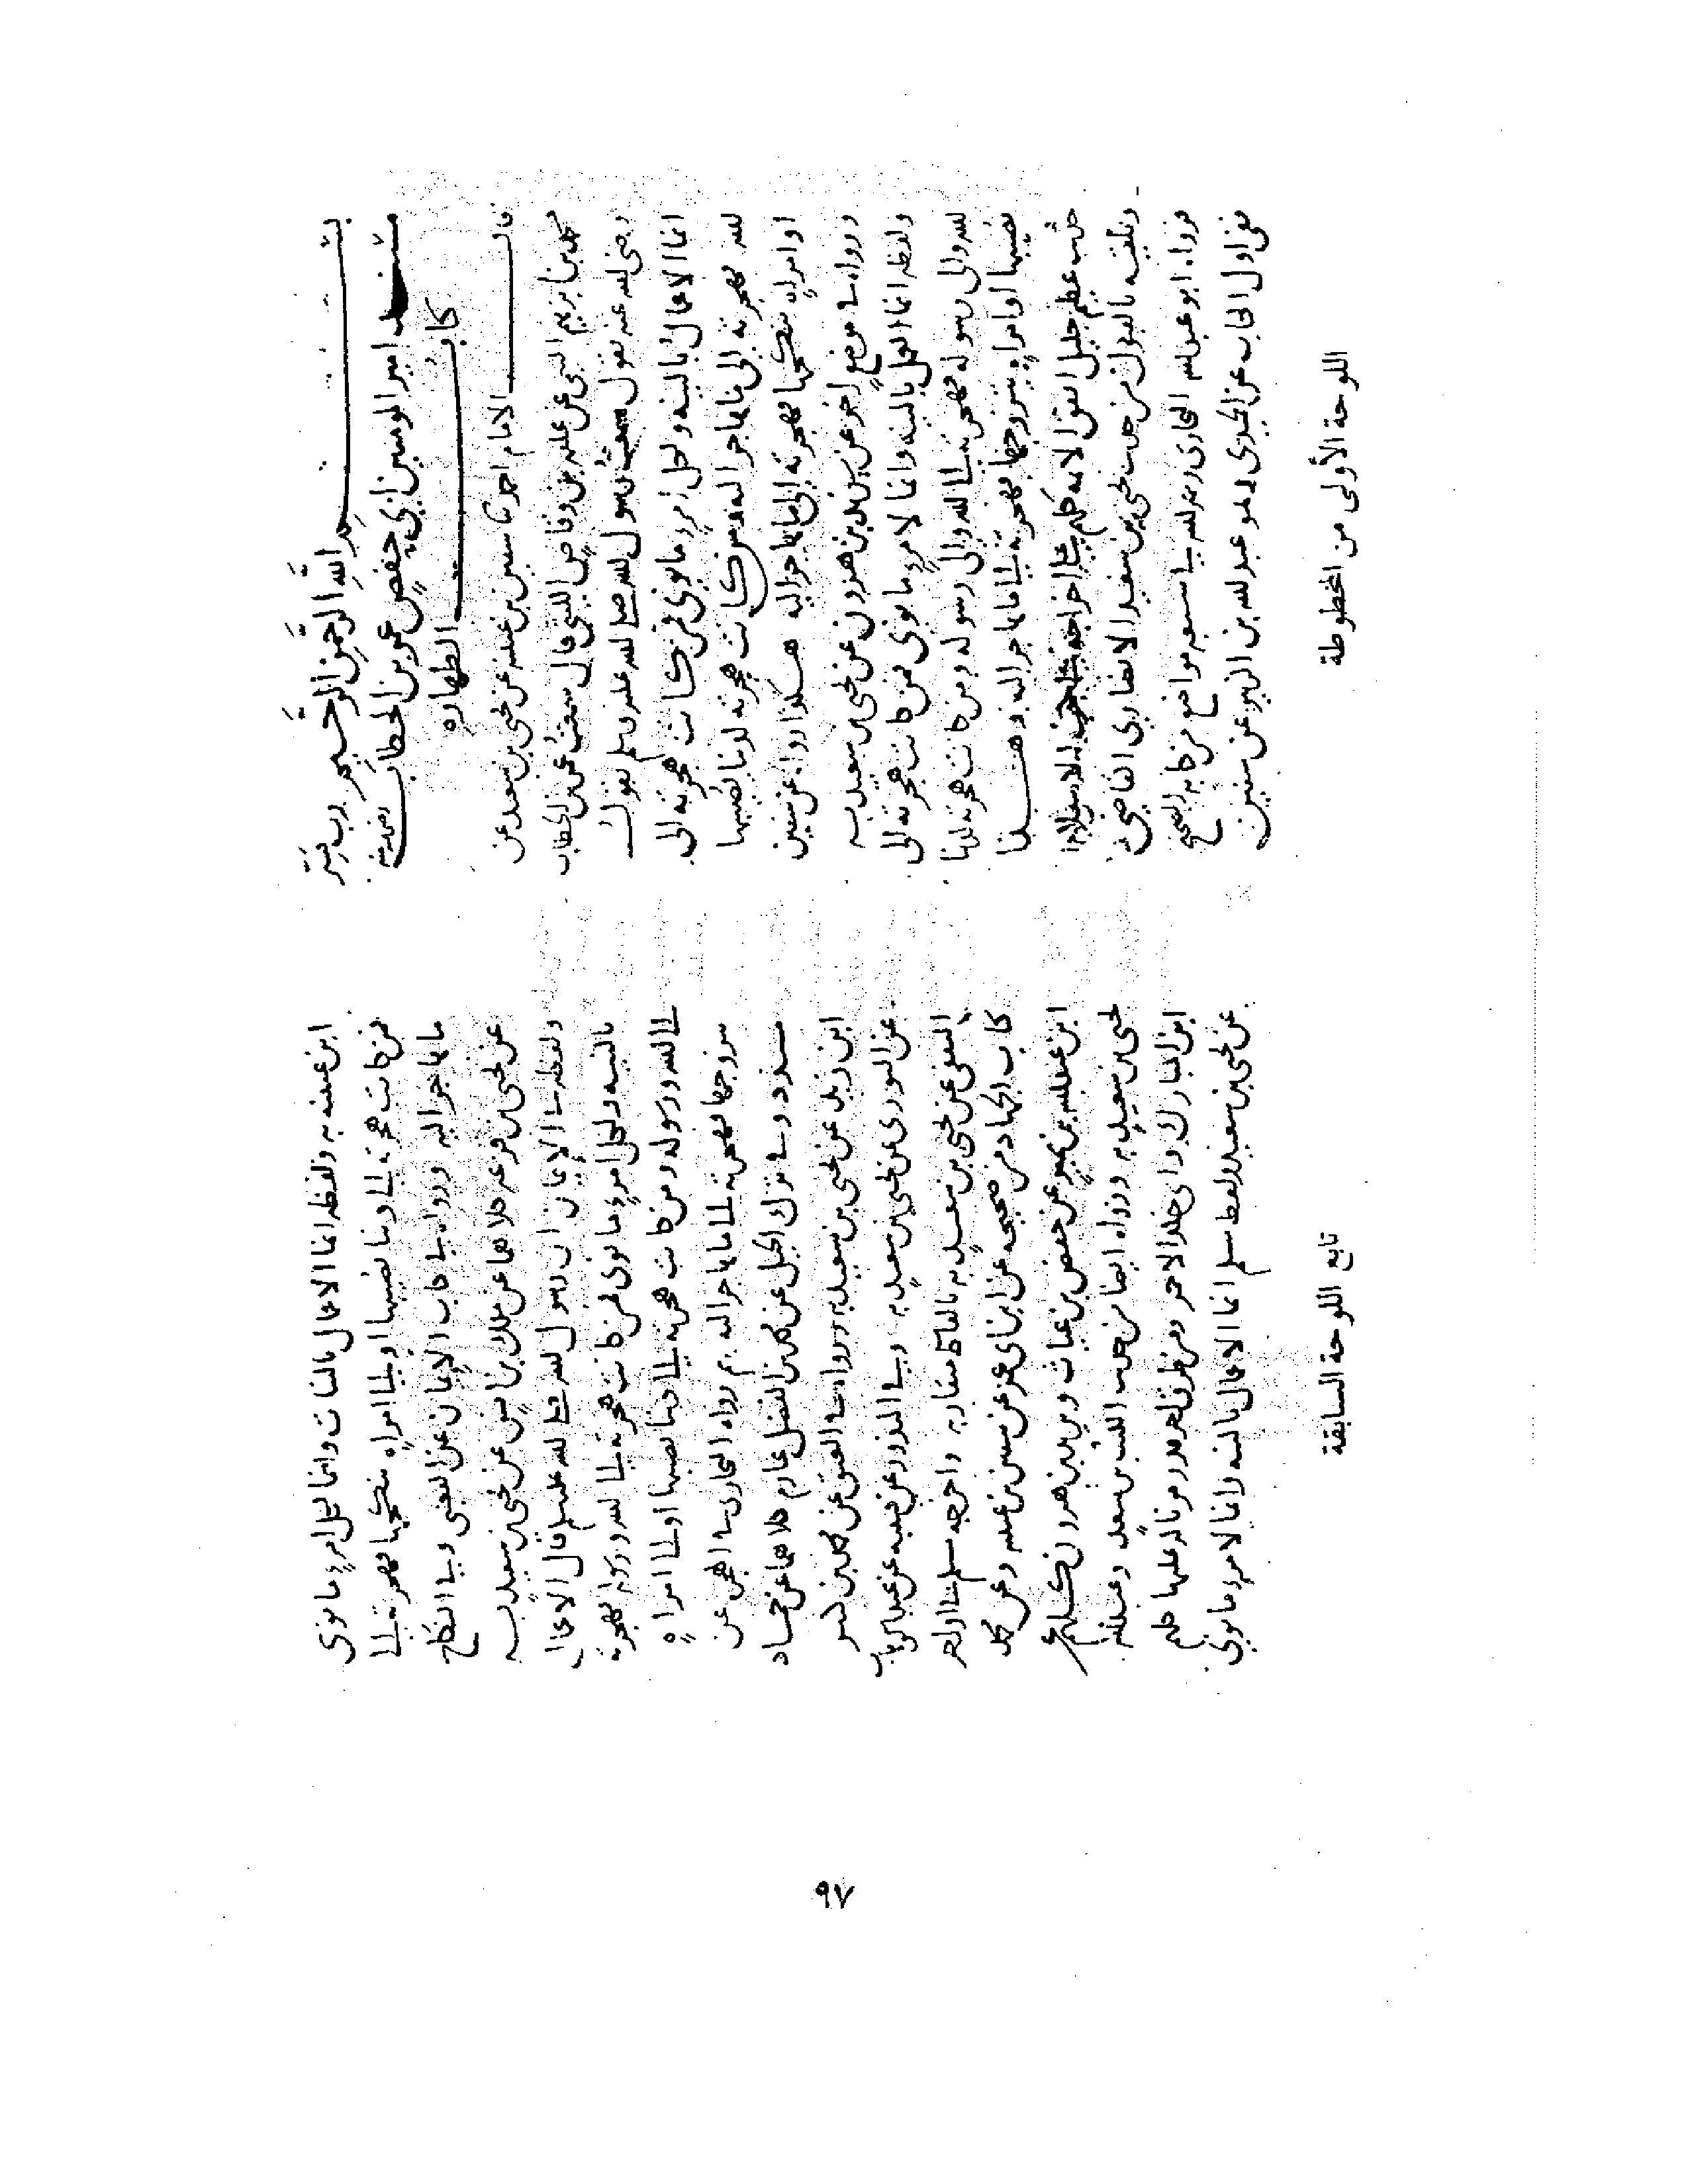 بسم الله الرحمن الرحيم رب يسر
مسند امير المومنين ابي حفص عمر بن الخطاب رضى الله عنه
كتاب الطهاره
قال الامام احمد سا سفين بن عيينه عن يحيى بن سعيد عن
محمد بن ابرهيم التيمي عن علقمه بن وقاص الليثي قال سمعت عمر بن الخطاب
رضى الله عنه يقول سمعت رسول الله صلى الله عليه وسلم يقول
انما الاعمال بالنيه ولكل امرء ما نوى فمن كانت هجرته الى
الله فهجرته الى ما هاجر اليه ومن كانت هجرته لدنيا يصيبها
او امراه ينكحها فهجرته الى ما هاجر اليه هكذا رواه عن سفين
ورواه في موضع اخر عن يزيد بن هرون عن يحيى بن سعيد به
ولفظه انما العمل بالنيه وانما لامرء ما نوى فمن كانت هجرته الى
الله والى رسوله فهجرته الى الله والى رسوله ومن كانت هجرته لدنيا
يصيبها او امراه يتزوجها فهجرته الى ما هاجر اليه هذا
حديث عظيم جليل اتفق الائمه كلهم على اخراجه
وتلقيه بالقبول من حديث يحيى بن سعيد الانصاري القاضي
فرواه ابو عبد الله البخاري رحمه الله في سبعه مواضع من كتابه الصحيح
ففي اول الكتاب عن الحميدي وهو عبد الله بن الزبير عن سفين
اللوحة الأولى من المخطوطة
ابن عيينه به ولفظه انما الاعمال بالنيات وانما لكل امرء ما نوى
فمن كانت هجرته الى دنيا يصيبها او الى امراه ينكحها فهجرته الى
ما هاجر اليه ورواه في كتاب الإيمان عن القعنبي وفي النكاح
عن يحيى بن قزعه كلاهما عن ملك بن انس عن يحيى بن سعيد به
ولفظه في الإيمان ان رسول الله صلى الله عليه وسلم قال الاعمال
بالنيه ولكل امرء ما نوى فمن كانت هجرته الى الله ورسوله فهجرته
الى الله ورسوله ومن كانت هجرته الى دنيا يصيبها او الى امراه
يتزوجها فهجرته الى ما هاجر اليه ثم رواه البخاري في الهجره عن
مسدد وفي ترك الحيل عن محمد بن الفضل عارم كلاهما عن حماد
ابن زيد عن يحيى بن سعيد به ورواه في العتق عن محمد بن كثير
عن الثوري عن يحيى بن سعيد به وفي النذور عن قتيبه عن عبد الوهاب
الثقفي عن يحيى بن سعيد به بالفاظ متقاربه واخرجه مسلم في اواخر
كتاب الجهاد من صحيحه عن ابن ابي عمر عن سفين بن عيينه وعن محمد
ابن عبد الله بن نمير عن حفص بن غياث ويزيد بن هرون كلهم عن
يحيى بن سعيد به ورواه ايضا من حديث الليث بن سعد وعبد الله
ابن المبارك وابي خالد الاحمر ومن طرق اخر كلهم
عن يحيى بن سعيد ولفظ مسلم انما الاعمال بالنيه وانما لامرء ما نوى
تابع اللوحة السابقة
٩٧